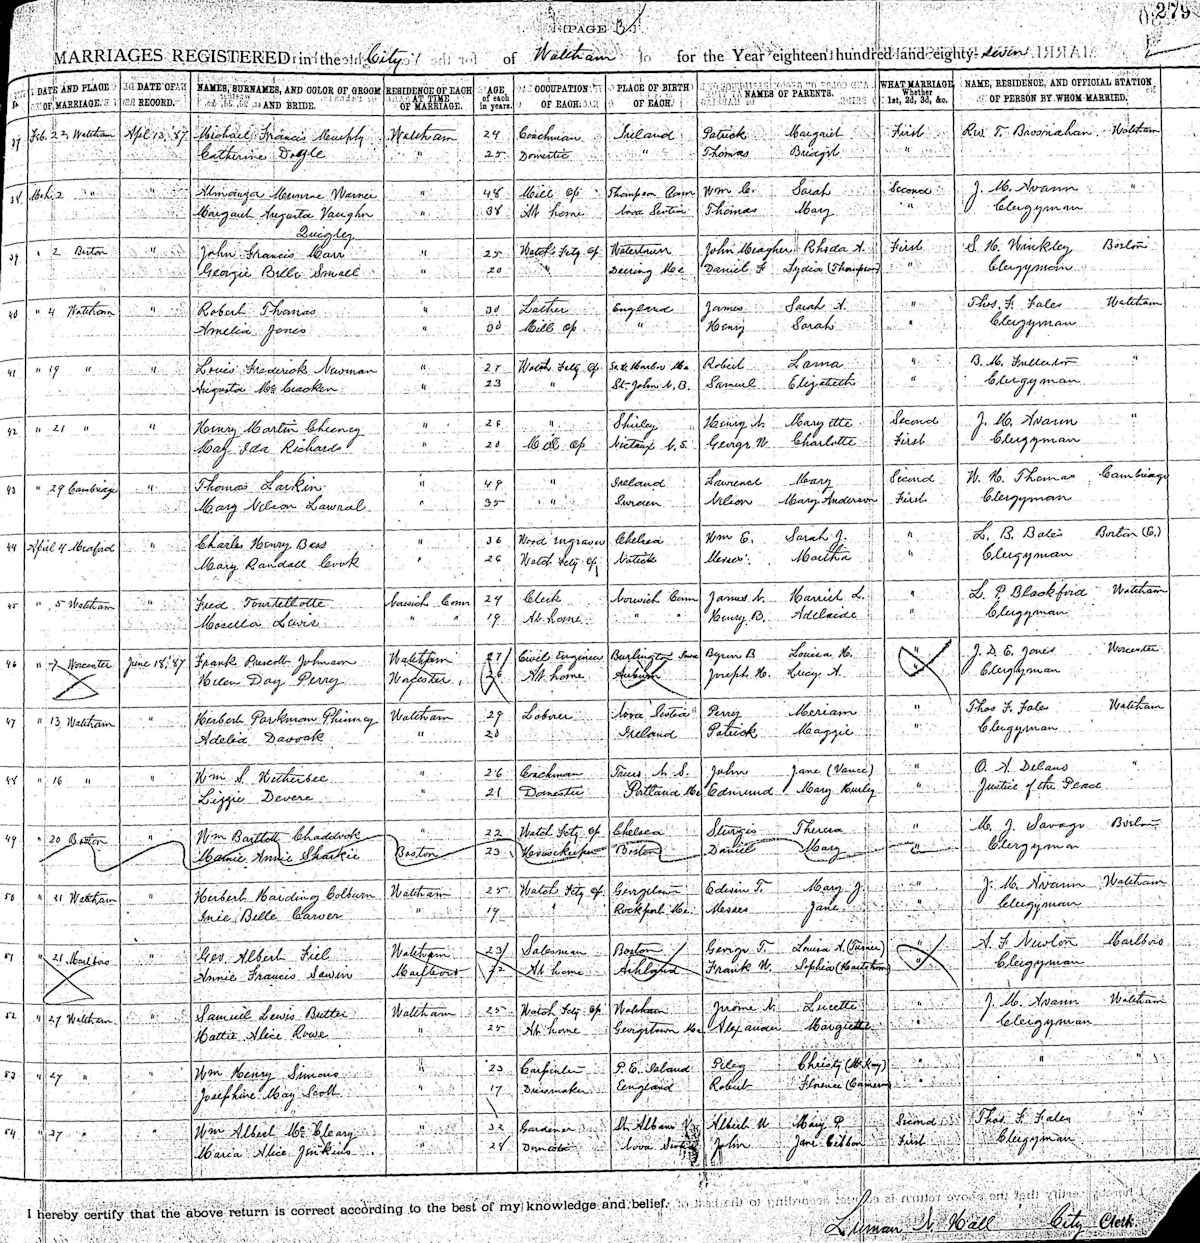 [PAGE B]
279
MARRIAGES REGISTERED in the City of Waltham for the Year eighteen hundred and eighty-seven
No. DATE AND PLACE OF MARRIAGE. DATE OF RECORD. NAMES, SURNAMES, AND COLOR OF GROOM AND BRIDE. RESIDENCE OF EACH AT TIME OF MARRIAGE. AGE of each in years. OCCUPATION OF EACH. PLACE OF BIRTH OF EACH. NAMES OF PARENTS. WHAT MARRIAGE, Whether 1st, 2d, 3d, &c. NAME, RESIDENCE, AND OFFICIAL STATION OF PERSON BY WHOM MARRIED.
37 Feb. 22 Waltham Apl 13, '87 Michael Francis Murphy Waltham 24 Coachman Ireland Patrick Margaret First Rev T. Brosnahan Waltham
Catherine Doyle " 25 Domestic " Thomas Bridget "
38 Mch. 2 " " Almanza Munroe Warner " 48 Mill Op Thompson Conn Wm C. Sarah Second J. M. Avann "
Margaret Augusta Vaughn " 38 At home Nova Scotia Thomas Mary " Clergyman
Quigley
39 " 2 Boston " John Francis Marr " 25 Watch Fcty Op Watertown John Meagher Rhoda A. First S. H. Winkley Boston
Georgie Belle Small " 20 " Deering Me Daniel F Lydia (Thompson) " Clergyman
40 " 4 Waltham " Robert Thomas " 30 Lather England James Sarah A. " Thos. F. Fales Waltham
Amelia Jones " 30 Mill Op " Henry Sarah " Clergyman
41 " 19 " " Louis Frederick Newman " 21 Watch Fcty Op Robert " B. M. Fullerton "
Augusta McCracken " 23 " St. John N.B. Samuel Elizabeth " Clergyman
42 " 21 " " Henry Martin Cheency " 26 " Shirley Henry N. Maryette Second J. M. Avann "
May Ida Richards " 20 Mill Op Nictaux N.S. George W. Charlotte First Clergyman
43 " 29 Cambridge " Thomas Larkin " 49 " Ireland Lawrence Mary Second W. H. Thomas Cambridge
Mary Nilson " 35 " Sweden Nilson Mary Anderson First Clergyman
44 April 4 Medford " Charles Henry Bess " 36 Wood engraver Chelsea Wm E. Sarah J. " L. B. Bates Boston (E.)
Mary Randall Cook " 26 Watch Fcty Op Natick Moses Martha " Clergyman
45 " 5 Waltham " Fred Tourtellotte Norwich Conn 24 Clerk Norwich Conn James N. Harriet L. " L. P. Blackford Waltham
Mosella Lewis " " 19 At home " " Henry B. Adelaide " Clergyman
46 " 7 Worcester June 18, '87 Frank Prescott Johnson Waltham 27 Civil Engineer Burlington Iowa Byron B Louisa H. " J. D. E. Jones Worcester
Helen Day Perry Worcester 26 At home Auburn Joseph H. Lucy A. " Clergyman
47 " 13 Waltham " Herbert Parkman Phinney Waltham 29 Laborer Nova Scotia Perry Meriam " Thos F. Fales Waltham
Adelia Davock " 20 Ireland Patrick Maggie " Clergyman
48 " 16 " " Wm S. Wetherbee " 26 Coachman Truro N.S. John Jane (Vance) " O. A. Delano "
Lizzie Devere " 21 Domestic Portland Me Edmund Mary Hurley " Justice of the Peace
49 " 20 Boston " Wm Bartlett Chaddock " 22 Watch Fcty Op. Chelsea Sturgis Theresa " M. J. Savage Boston
Mamie Annie Sharkie Boston 23 Housekeeper Boston Daniel Mary " Clergyman
50 " 21 Waltham " Herbert Harding Colburn Waltham 25 Watch Fcty Op. Georgetown Edwin T. Mary J. " J. M. Avann Waltham
Inie Belle Carver " 19 " Rockport Me. Moses Jane " Clergyman
51 " 21 Marlboro " Geo. Albert Fiel Waltham 23 Salesman Boston George T. Louisa A. (Turner) " A. F. Newton Marlboro
Annie Francis Sawin Marlboro 22 At home Ashland Frank W. Sophia " Clergyman
52 " 27 Waltham " Samuel Lewis Butler Waltham 25 Watch Fcty Op. Waltham Jerome N. Lucette " J. M. Avann Waltham
Hattie Alice Rowe " 25 At home Georgetown Me Alexander Margiette " Clergyman
53 " 27 " " Wm Henry Simons " 23 Carpenter P. E. Island Christy (McKay) " " "
Josephine May Scott " 17 Dressmaker England Robert Florence (Cameron) "
54 " 27 " " Wm Albert McCleary " 32 Gardener St Albans Vt Albert W Mary P. Second Thos. F. Fales "
Maria Alice Jenkins " 28 Domestic Nova Scotia John Jane Gibbon First Clergyman
I hereby certify that the above return is correct according to the best of my knowledge and belief.
Luman N. Hall City Clerk.